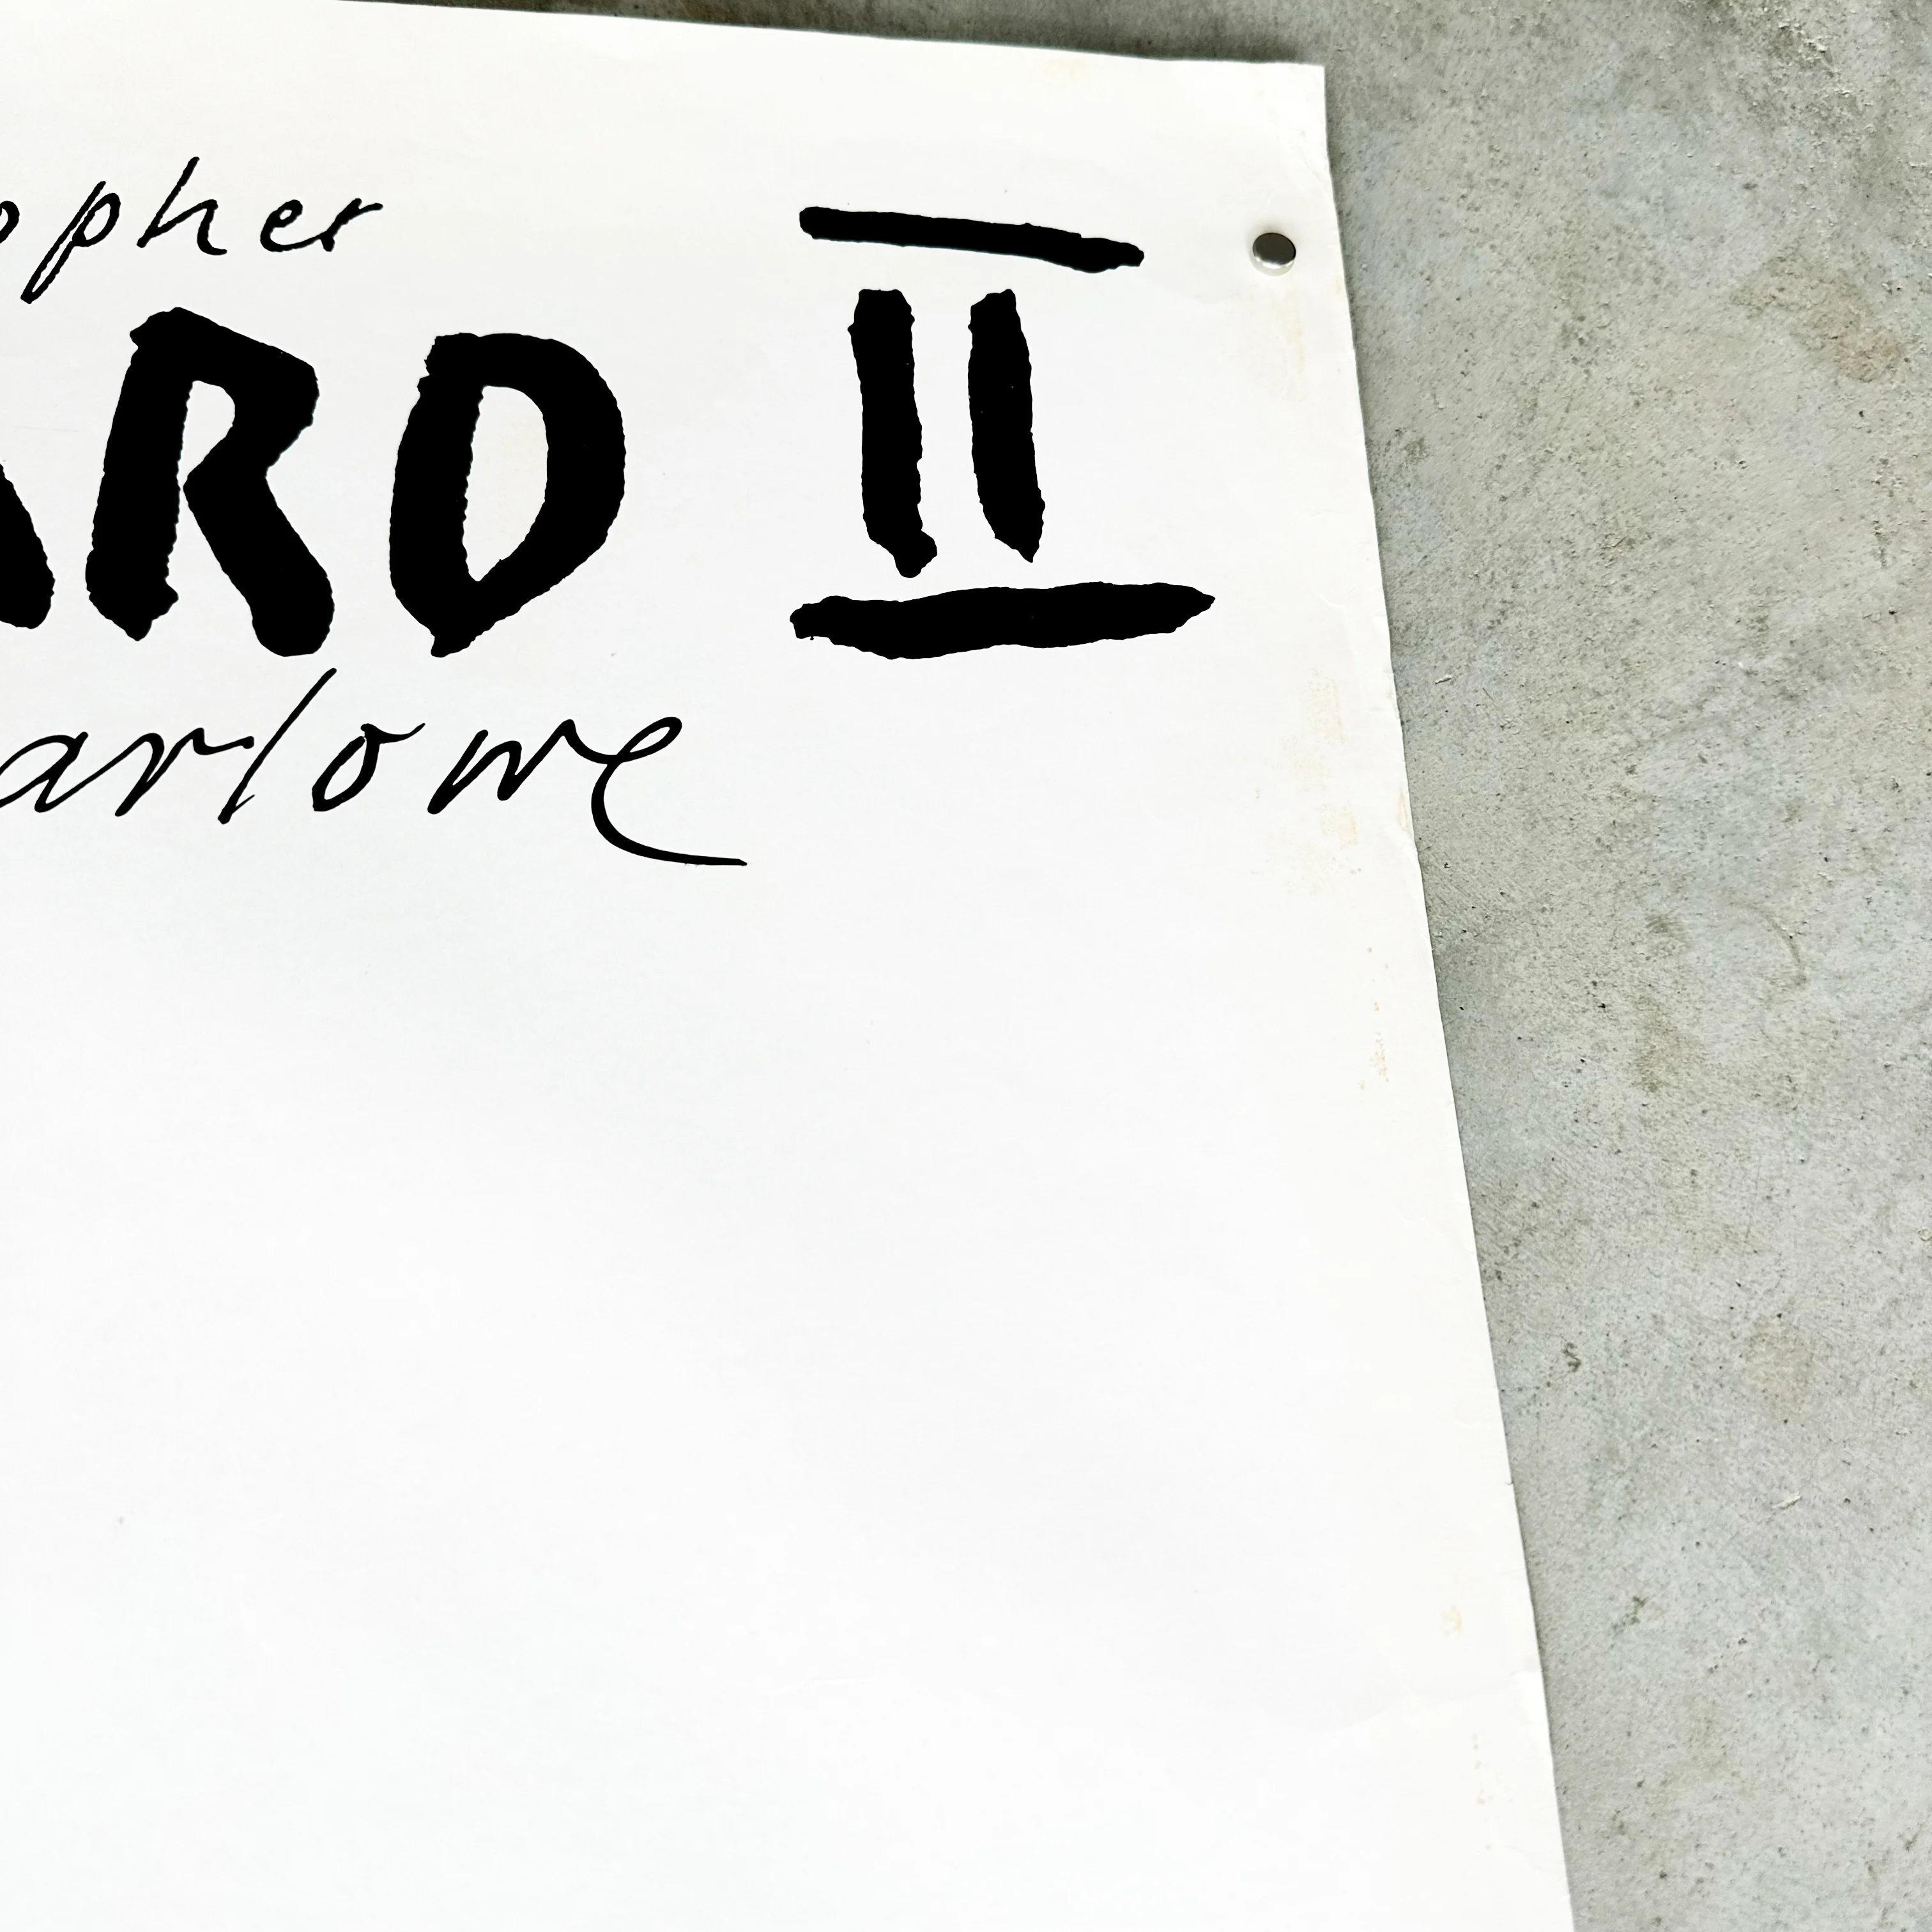 opher
ARD II
arlowe